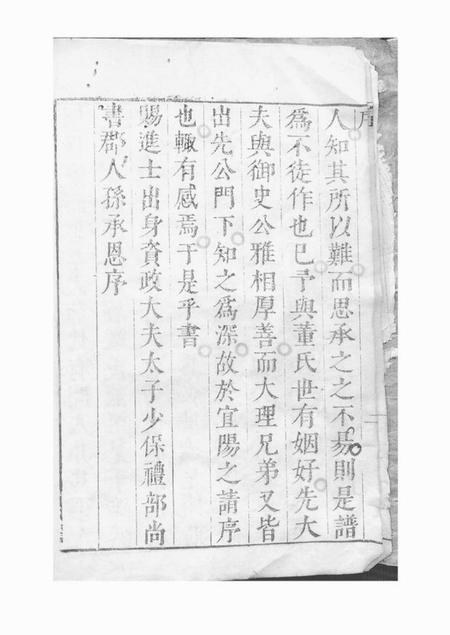 序
人知其所以難而思承之之不易則是譜
爲不徒作也已予與董氏世有姻好先大
夫與御史公雅相厚善而大理兄弟又皆
出先公門下知之爲深故於宜陽之請序
也輙有感焉于是乎書
賜進士出身資政大夫太子少保禮部尚
書郡人孫承恩序